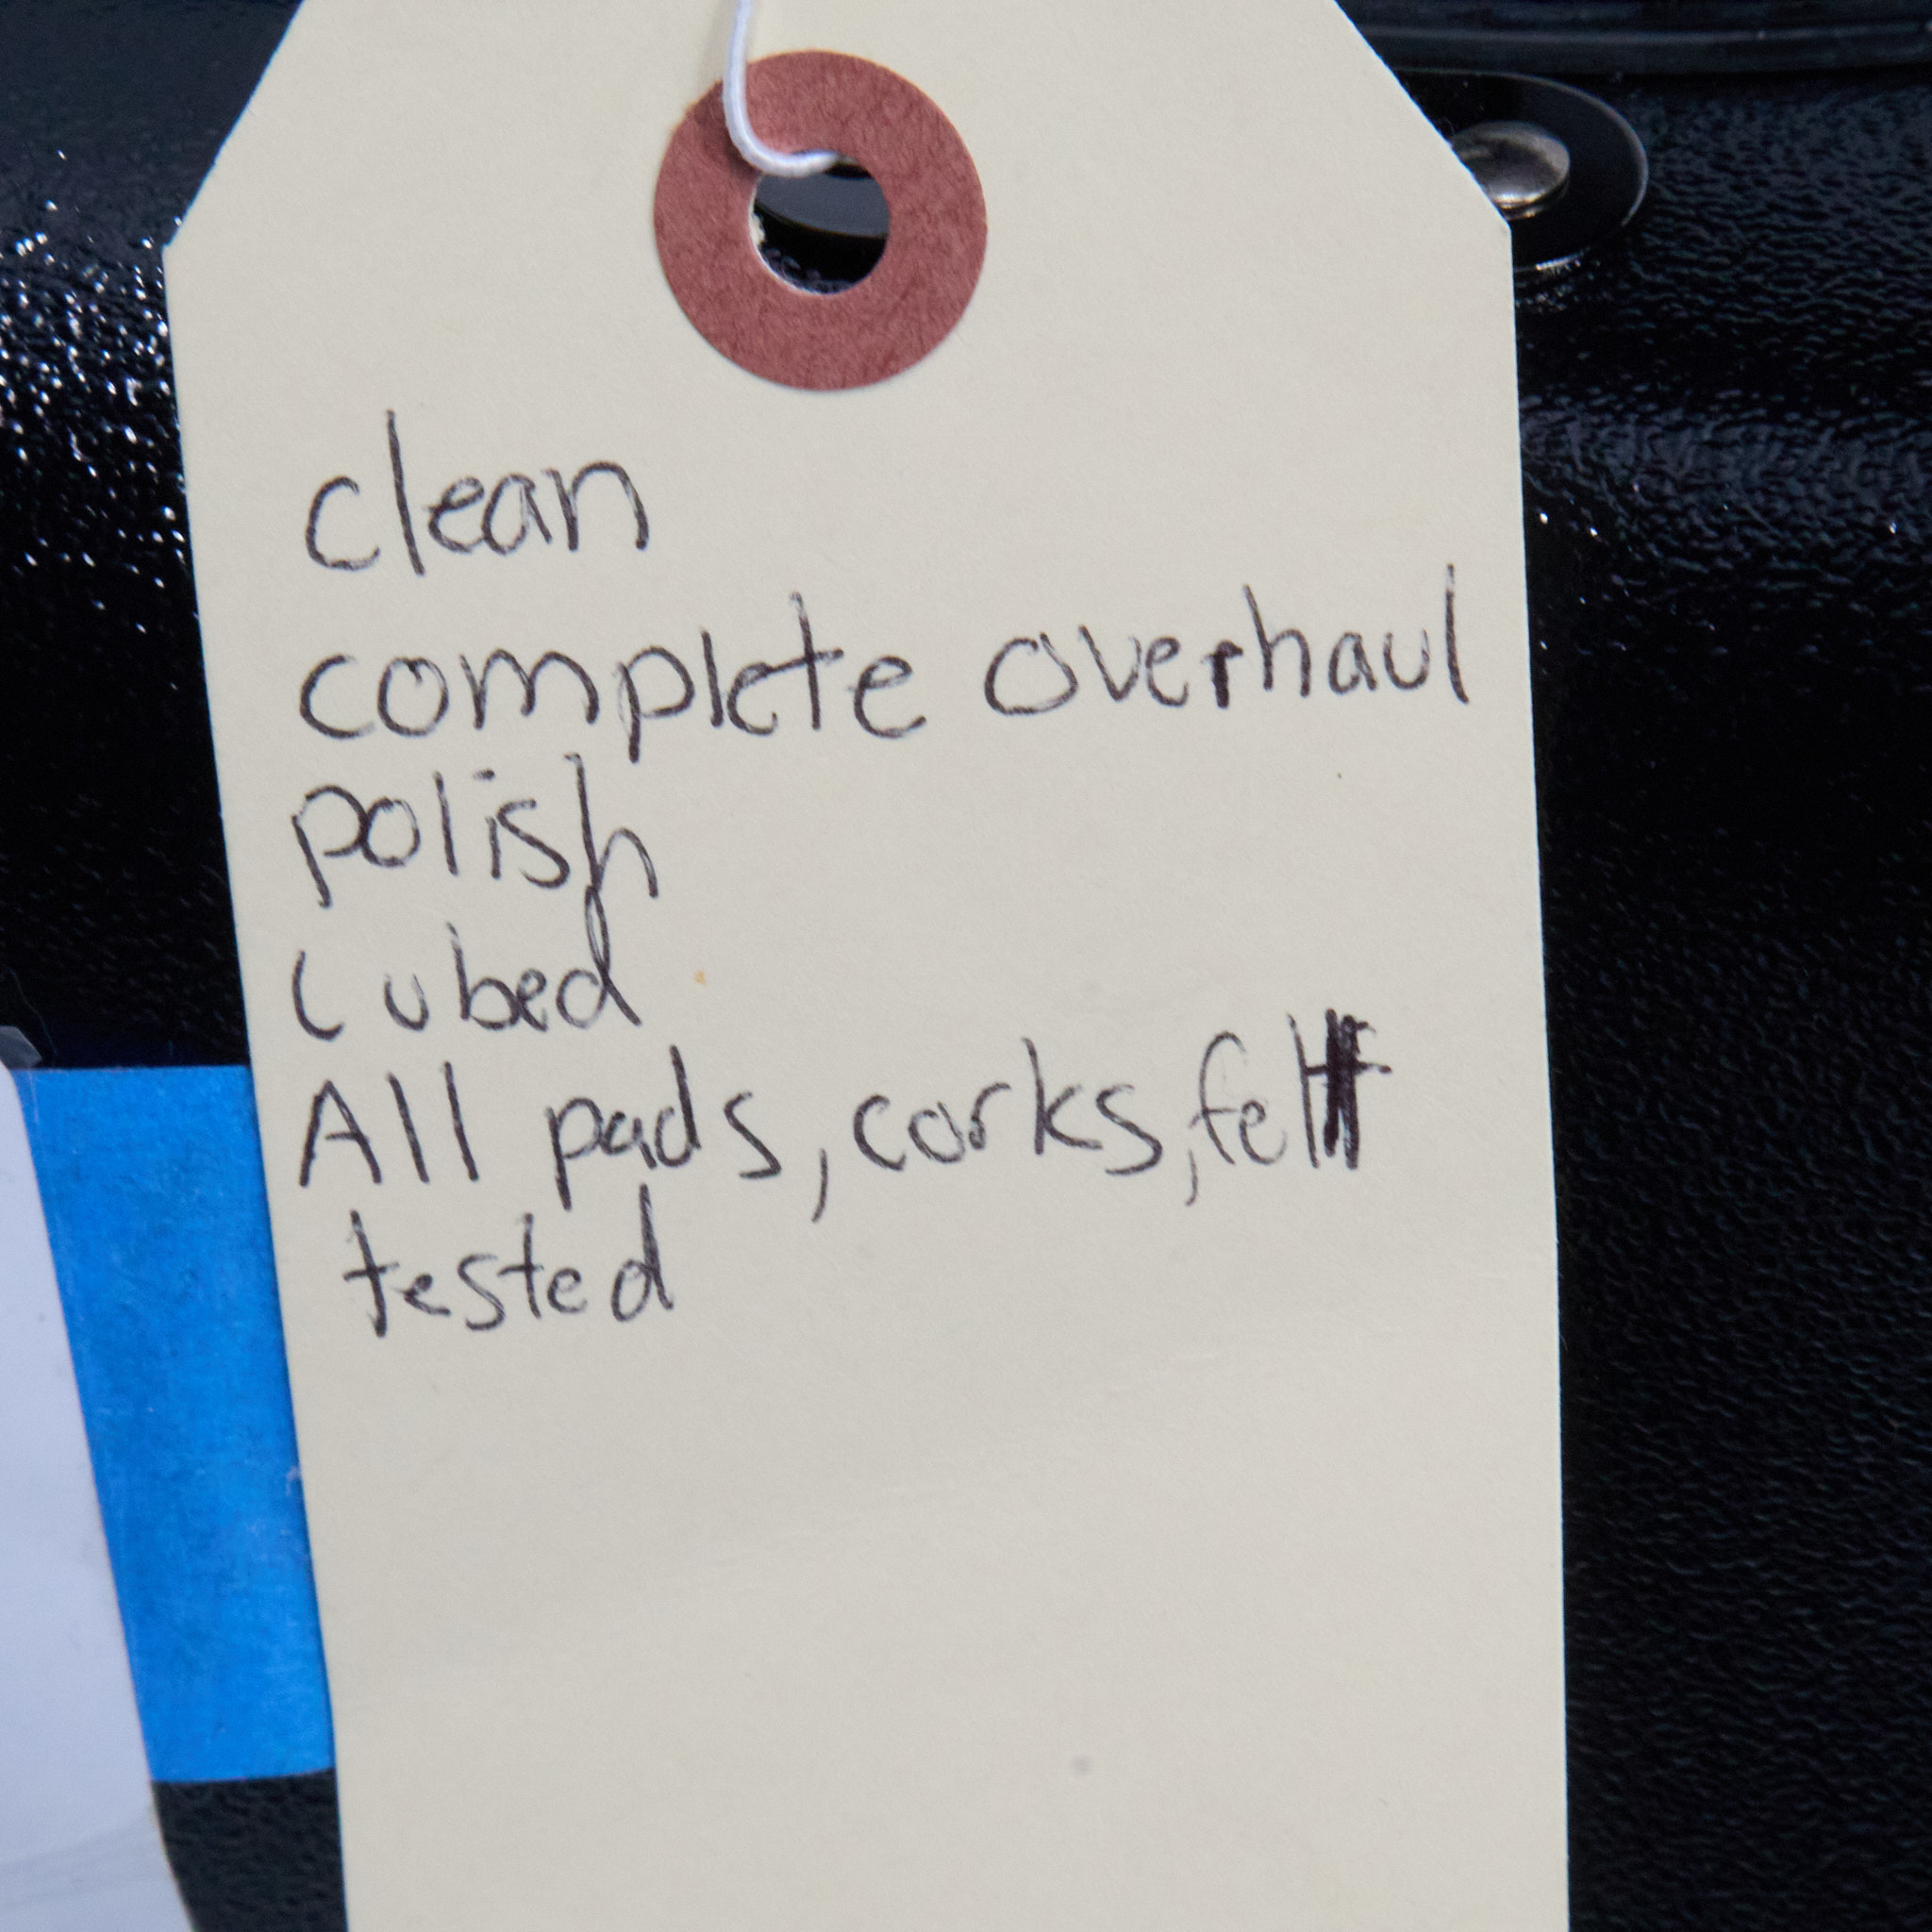 clean
complete overhaul
polish
lubed
All pads, corks, felt
tested